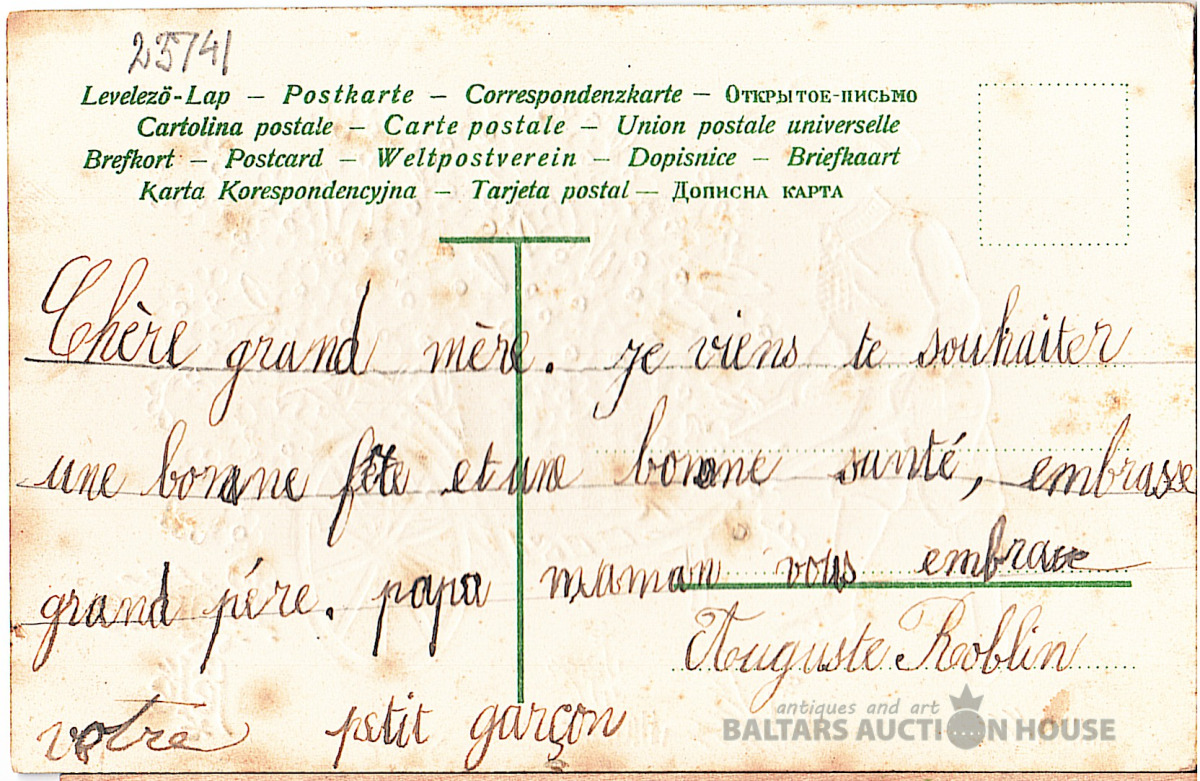 25741
Levelező-Lap — Postkarte — Correspondenzkarte — Открытое-письмо
Cartolina postale — Carte postale — Union postale universelle
Brefkort — Postcard — Weltpostverein — Dopisnice — Briefkaart
Karta Korespondencyjna — Tarjeta postal — Дописна карта
Chère grand mère. je viens te souhaiter
une bonne fête et une bonne santé, embrasse
grand pére. papa maman vous embrasse
Auguste Roblin
votre petit garçon
antiques and art
BALTARS AUCTION HOUSE